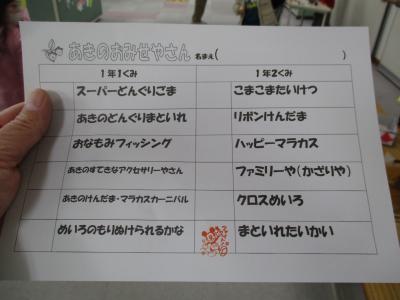 あきのおみせやさん 名まえ( )
1年1くみ 1年2くみ
スーパーどんぐりごま こまこまたいけつ
あきのどんぐりまといれ リボンけんだま
おなもみフィッシング ハッピーマラカス
あきのすてきなアクセサリーやさん ファミリーや(かざりや)
あきのけんだま・マラカスカーニバル クロスめいろ
めいろのもりぬけられるかな まといれたいかい